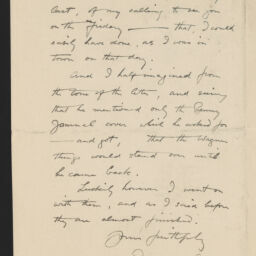 last, of my calling to see you
on the Friday — that, I could
easily have done, as I was in
town on that day.
And I half imagined from
the tone of the letter, and seeing
that he mentioned only the Penny
Journal cover which he asked for
— and got, that the Wagner
things would stand over until
he came back.
Luckily however I went on
with them, and as I said before
they are almost finished.
Yours faithfully